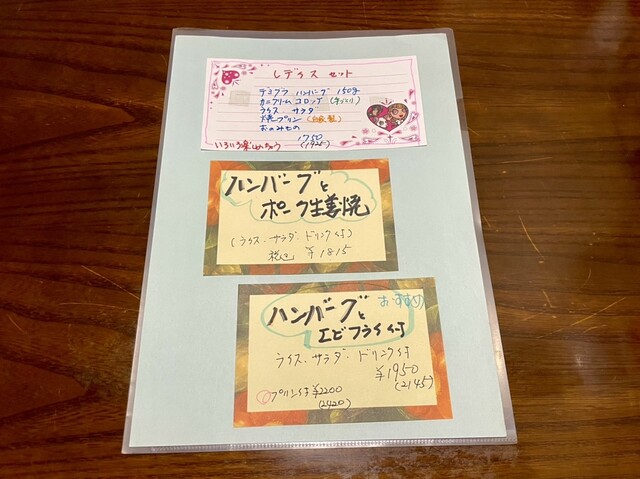 レディス セット
デミグラ ハンバーグ 150g
カニクリーム コロッケ (手づくり)
ライス サラダ
焼プリン (自家製)
おのみもの
1750
いろいろ楽しめちゃう (1925)
ハンバーグと
ポーク生姜焼
(ライス・サラダ・ドリンク付)
税込 ¥1815
おすすめ
ハンバーグと
エビフライ付
ライス・サラダ・ドリンク付
¥1950
(2145)
プリン付 ¥2200
(2420)